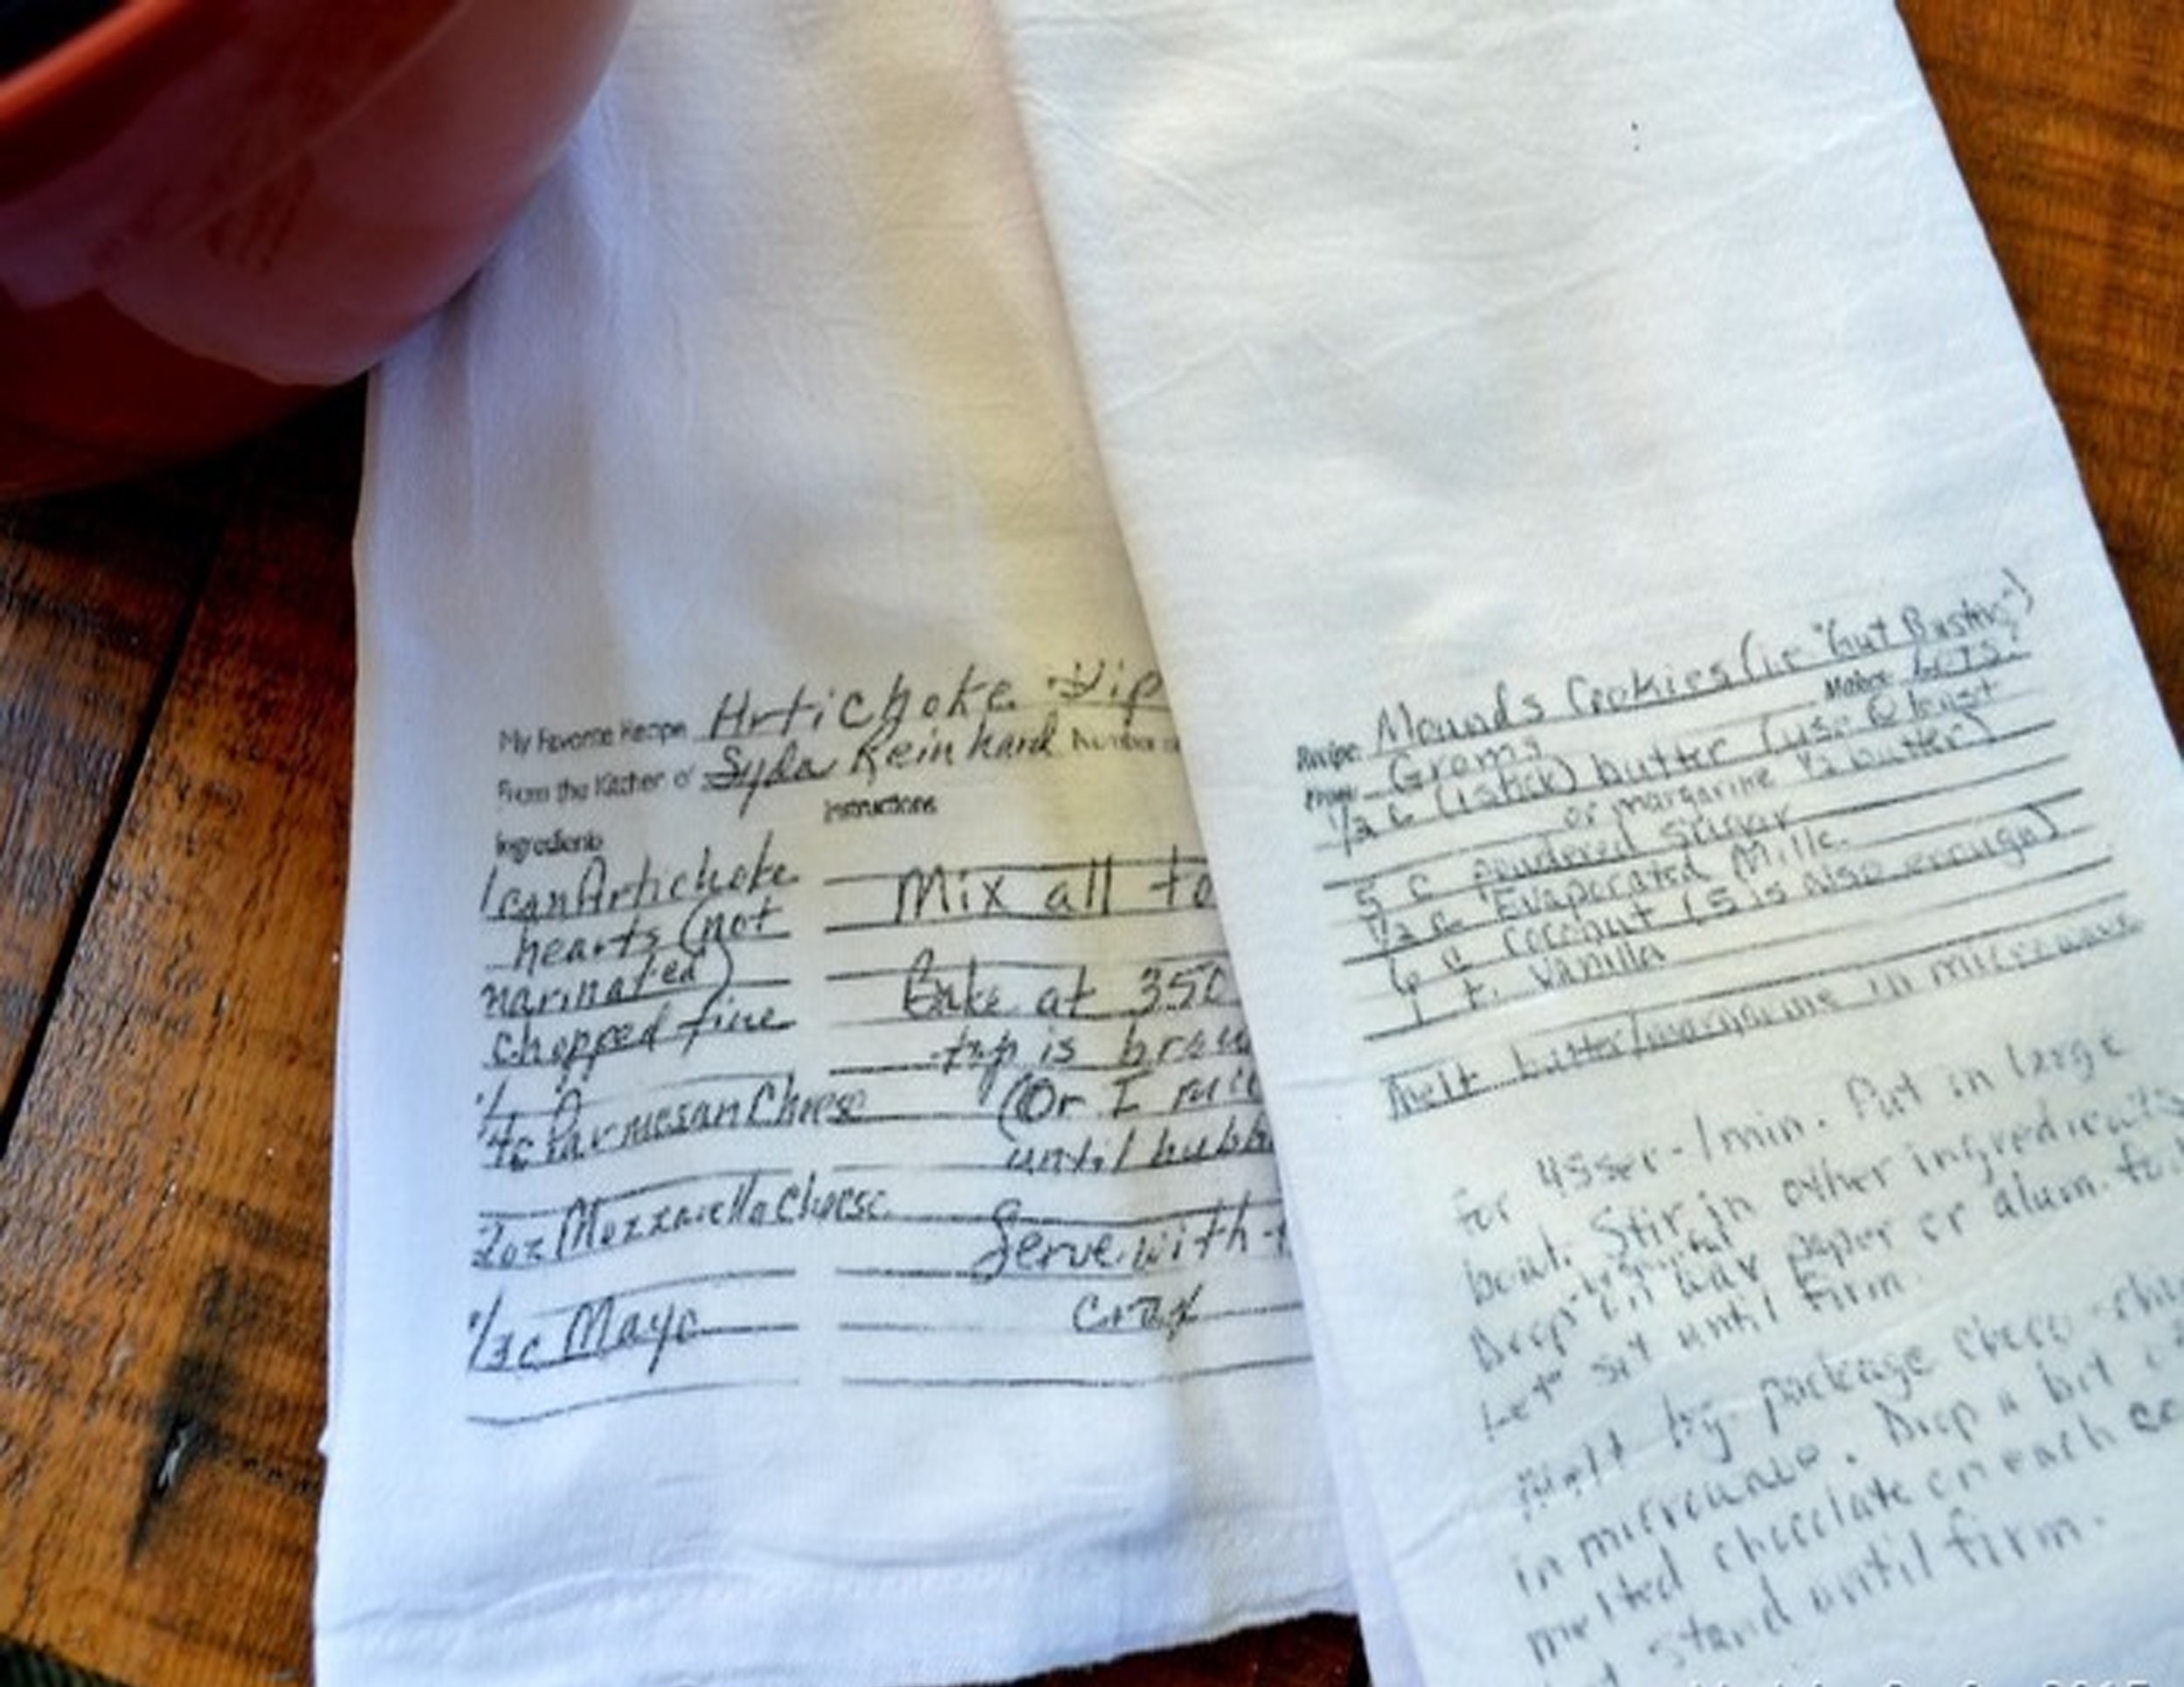 My Favorite Recipe Artichoke Dip
From the Kitchen of Syda Reinhard Number
Ingredients
Instructions
1 can Artichoke
hearts (not
marinated)
chopped fine
1/4 c Parmesan Cheese
2 oz Mozzarella Cheese
1/3 c Mayo
Mix all to
Bake at 350
top is brow
(Or I mic
until bubb
Serve with t
crax
Recipe: Mounds Cookies (ie "Gut Busting")
Makes: LOTS!
From: Groms
1/2 c (1 stick) butter (use @ least
or margarine 1/2 butter)
5 c powdered sugar
1/2 c. Evaporated Milk
6 c coconut (5 is also enough)
1 t. vanilla
Melt butter/margarine in microwave
for 45sec-1min. Put in large
bowl. Stir in other ingredients
Drop by on wax paper or alum. fo
Let sit until firm.
Melt package choco-chi
in microwave. Drop a bit
melted chocolate on each co
stand until firm.
2015